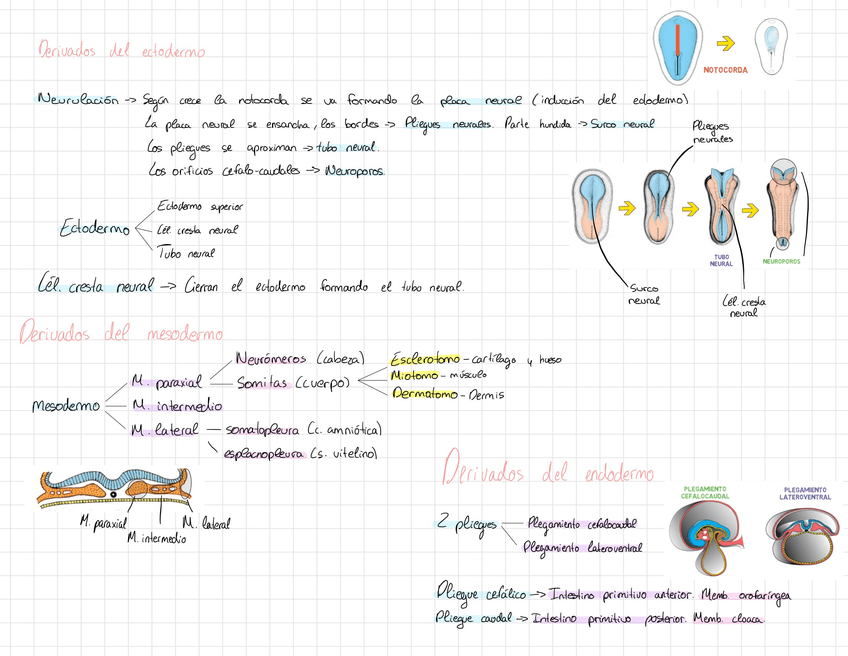 Derivados del ectodermo
NOTOCORDA
Neurulación -> Según crece la notocorda se va formando la placa neural (inducción del ectodermo)
La placa neural se ensancha, los bordes -> Pliegues neurales. Parte hundida -> Surco neural
Los pliegues se aproximan -> tubo neural.
Los orificios cefalo-caudales -> Neuroporos.
Pliegues
neurales
Ectodermo
Ectodermo superior
Cél. cresta neural
Tubo neural
TUBO
NEURAL
NEUROPOROS
Surco
neural
Cél. cresta
neural
Cél. cresta neural -> Cierran el ectodermo formando el tubo neural.
Derivados del mesodermo
Mesodermo
M. paraxial
Neurómeros (cabeza)
Somitas (cuerpo)
Esclerotomo - cartílago y hueso
Miotomo - músculo
Dermatomo - Dermis
M. intermedio
M. lateral
somatopleura (c. amniótica)
esplacnopleura (s. vitelino)
M. paraxial
M. intermedio
M. lateral
Derivados del endodermo
2 pliegues
Plegamiento cefalocaudal
Plegamiento lateroventral
PLEGAMIENTO
CEFALOCAUDAL
PLEGAMIENTO
LATEROVENTRAL
Pliegue cefálico -> Intestino primitivo anterior. Memb. orofaríngea
Pliegue caudal -> Intestino primitivo posterior. Memb. cloaca.